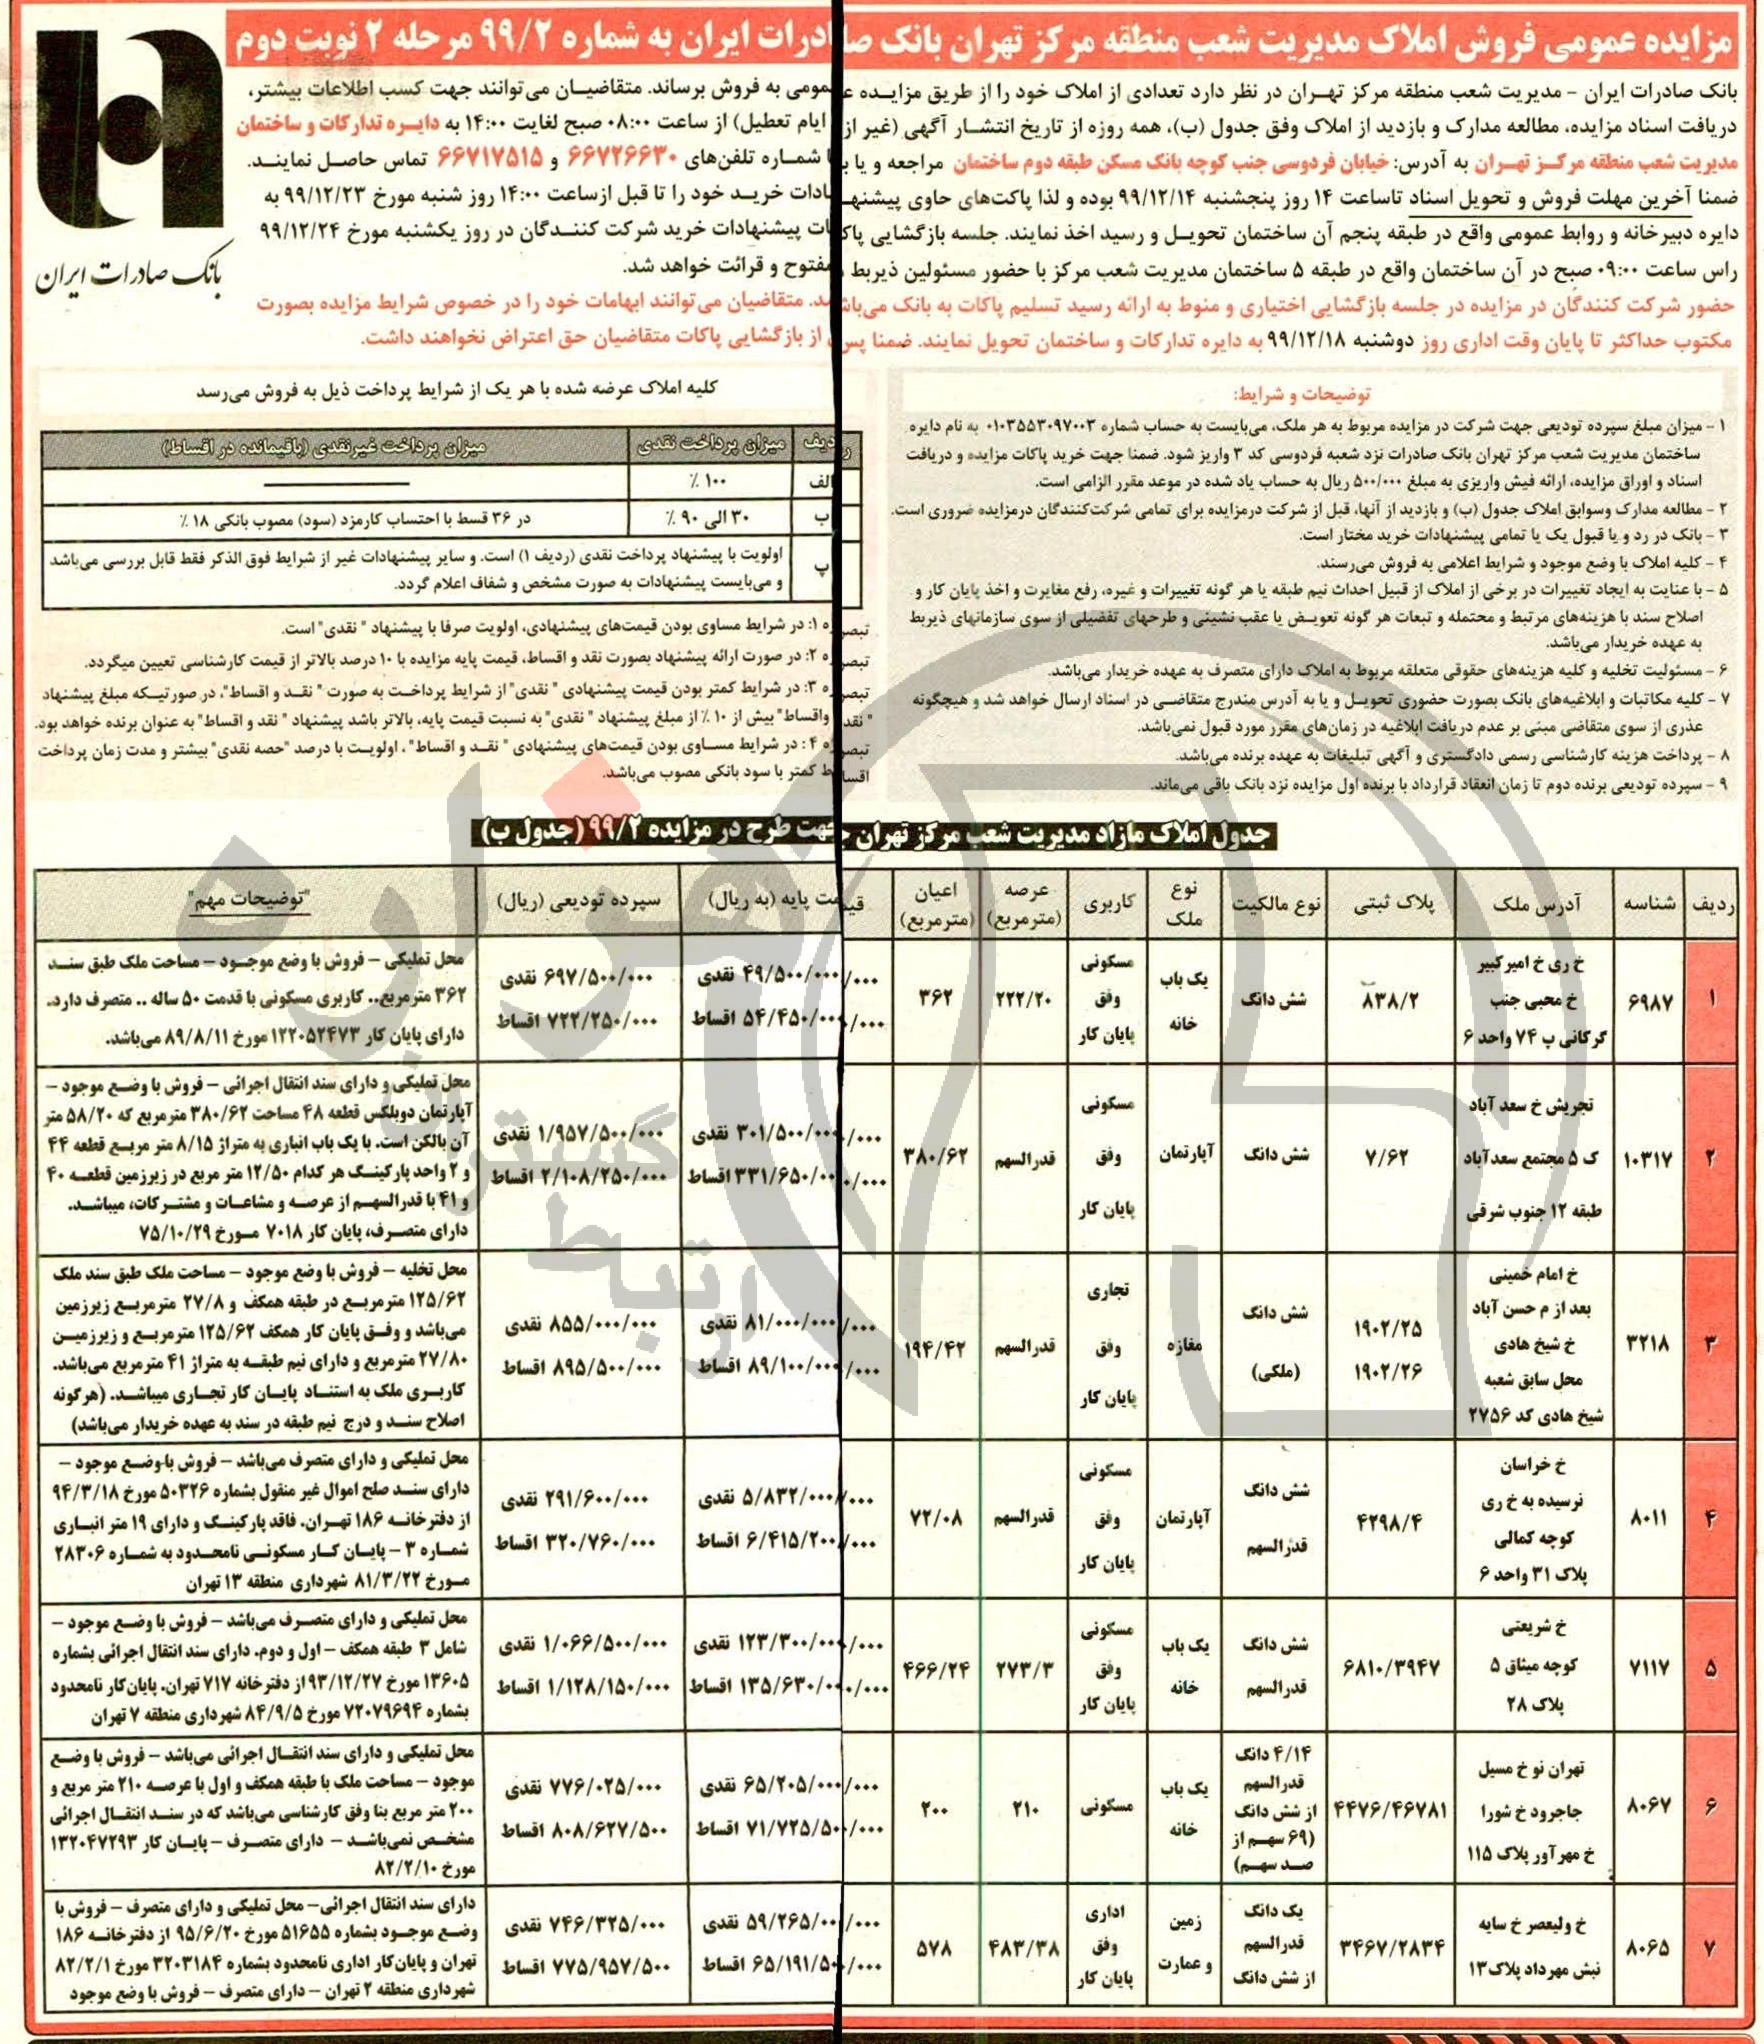 مزایده عمومی فروش املاک مدیریت شعب منطقه مرکز تهران بانک صادرات ایران به شماره ۹۹/۲ مرحله ۲ نوبت دوم
بانک صادرات ایران
بانک صادرات ایران - مدیریت شعب منطقه مرکز تهـران در نظر دارد تعدادی از املاک خود را از طریق مزایـده عمومی به فروش برساند. متقاضیـان می‌توانند جهت کسب اطلاعات بیشتر،
دریافت اسناد مزایده، مطالعه مدارک و بازدید از املاک وفق جدول (ب)، همه روزه از تاریخ انتشـار آگهی (غیر از ایام تعطیل) از ساعت ۰۸:۰۰ صبح لغایت ۱۴:۰۰ به دایـره تدارکات و ساختمان
مدیریت شعب منطقه مرکـز تهـران به آدرس: خیابان فردوسی جنب کوچه بانک مسکن طبقه دوم ساختمان مراجعه و یا با شمـاره تلفن‌های ۶۶۷۲۶۶۳۰ و ۶۶۷۱۷۵۱۵ تماس حاصـل نماینـد.
ضمنا آخرین مهلت فروش و تحویل اسناد تاساعت ۱۴ روز پنجشنبه ۹۹/۱۲/۱۴ بوده و لذا پاکت‌های حاوی پیشنهادات خریـد خود را تا قبل ازساعت ۱۴:۰۰ روز شنبه مورخ ۹۹/۱۲/۲۳ به
دایره دبیرخانه و روابط عمومی واقع در طبقه پنجم آن ساختمان تحویـل و رسید اخذ نمایند. جلسه بازگشایی پاکات پیشنهادات خرید شرکت کننـدگان در روز یکشنبه مورخ ۹۹/۱۲/۲۴
راس ساعت ۰۹:۰۰ صبح در آن ساختمان واقع در طبقه ۵ ساختمان مدیریت شعب مرکز با حضور مسئولین ذیربط مفتوح و قرائت خواهد شد.
حضور شرکت کنندگان در مزایده در جلسه بازگشایی اختیاری و منوط به ارائه رسید تسلیم پاکات به بانک می‌باشد. متقاضیان می‌توانند ابهامات خود را در خصوص شرایط مزایده بصورت
مکتوب حداکثر تا پایان وقت اداری روز دوشنبه ۹۹/۱۲/۱۸ به دایره تدارکات و ساختمان تحویل نمایند. ضمنا پس از بازگشایی پاکات متقاضیان حق اعتراض نخواهند داشت.
توضیحات و شرایط:
۱ - میزان مبلغ سپرده تودیعی جهت شرکت در مزایده مربوط به هر ملک، می‌بایست به حساب شماره ۰۱۰۳۵۵۳۰۹۷۰۰۳ به نام دایره
ساختمان مدیریت شعب مرکز تهران بانک صادرات نزد شعبه فردوسی کد ۳ واریز شود. ضمنا جهت خرید پاکات مزایده و دریافت
اسناد و اوراق مزایده، ارائه فیش واریزی به مبلغ ۵۰۰/۰۰۰ ریال به حساب یاد شده در موعد مقرر الزامی است.
۲ - مطالعه مدارک وسوابق املاک جدول (ب) و بازدید از آنها، قبل از شرکت درمزایده برای تمامی شرکت‌کنندگان درمزایده ضروری است.
۳ - بانک در رد و یا قبول یک یا تمامی پیشنهادات خرید مختار است.
۴ - کلیه املاک با وضع موجود و شرایط اعلامی به فروش می‌رسند.
۵ - با عنایت به ایجاد تغییرات در برخی از املاک از قبیل احداث نیم طبقه یا هر گونه تغییرات و غیره، رفع مغایرت و اخذ پایان کار و
اصلاح سند با هزینه‌های مرتبط و محتمله و تبعات هر گونه تعویـض یا عقب نشینی و طرحهای تفضیلی از سوی سازمانهای ذیربط
به عهده خریدار می‌باشد.
۶ - مسئولیت تخلیه و کلیه هزینه‌های حقوقی متعلقه مربوط به املاک دارای متصرف به عهده خریدار می‌باشد.
۷ - کلیه مکاتبات و ابلاغیه‌های بانک بصورت حضوری تحویـل و یا به آدرس مندرج متقاضـی در اسناد ارسال خواهد شد و هیچگونه
عذری از سوی متقاضی مبنی بر عدم دریافت ابلاغیه در زمان‌های مقرر مورد قبول نمی‌باشد.
۸ - پرداخت هزینه کارشناسی رسمی دادگستری و آگهی تبلیغات به عهده برنده می‌باشد.
۹ - سپرده تودیعی برنده دوم تا زمان انعقاد قرارداد با برنده اول مزایده نزد بانک باقی می‌ماند.
کلیه املاک عرضه شده با هر یک از شرایط پرداخت ذیل به فروش می‌رسد
ردیف میزان پرداخت نقدی میزان پرداخت غیرنقدی (باقیمانده در اقساط)
الف ۱۰۰ ٪
ب ۳۰ الی ۹۰ ٪ در ۳۶ قسط با احتساب کارمزد (سود) مصوب بانکی ۱۸ ٪
پ اولویت با پیشنهاد پرداخت نقدی (ردیف ۱) است. و سایر پیشنهادات غیر از شرایط فوق الذکر فقط قابل بررسی می‌باشد
و می‌بایست پیشنهادات به صورت مشخص و شفاف اعلام گردد.
تبصره ۱: در شرایط مساوی بودن قیمت‌های پیشنهادی، اولویت صرفا با پیشنهاد " نقدی" است.
تبصره ۲: در صورت ارائه پیشنهاد بصورت نقد و اقساط، قیمت پایه مزایده با ۱۰ درصد بالاتر از قیمت کارشناسی تعیین میگردد.
تبصره ۳: در شرایط کمتر بودن قیمت پیشنهادی " نقدی" از شرایط پرداخـت به صورت " نقـد و اقساط"، در صورتیـکه مبلغ پیشنهاد
" نقد واقساط" بیش از ۱۰ ٪ از مبلغ پیشنهاد " نقدی" به نسبت قیمت پایه، بالاتر باشد پیشنهاد " نقد و اقساط" به عنوان برنده خواهد بود.
تبصره ۴ : در شرایط مسـاوی بودن قیمت‌های پیشنهادی " نقـد و اقساط" ، اولویـت با درصد "حصه نقدی" بیشتر و مدت زمان پرداخت
اقساط کمتر با سود بانکی مصوب می‌باشد.
جدول املاک مازاد مدیریت شعب مرکز تهران جهت طرح در مزایده ۹۹/۲ (جدول ب)
ردیف شناسه آدرس ملک پلاک ثبتی نوع مالکیت نوع ملک کاربری عرصه (مترمربع) اعیان (مترمربع) قیمت پایه (به ریال) سپرده تودیعی (ریال) "توضیحات مهم"
۱ ۶۹۸۷
خ ری خ امیرکبیر
خ محبی جنب
گرکانی پ ۷۴ واحد ۶
۸۳۸/۲ شش دانگ
یک باب
خانه
مسکونی
وفق
پایان کار
۲۲۲/۲۰ ۳۶۲
۴۹/۵۰۰/۰۰۰/۰۰۰ نقدی
۵۴/۴۵۰/۰۰۰/۰۰۰ اقساط
۶۹۷/۵۰۰/۰۰۰ نقدی
۷۲۲/۲۵۰/۰۰۰ اقساط
محل تملیکی - فروش با وضع موجـود - مساحت ملک طبق سنـد
۳۶۲ مترمربع.. کاربری مسکونی با قدمت ۵۰ ساله .. متصرف دارد.
دارای پایان کار ۱۲۲۰۵۲۴۷۳ مورخ ۸۹/۸/۱۱ می‌باشد.
۲ ۱۰۳۱۷
تجریش خ سعد آباد
ک ۵ مجتمع سعدآباد
طبقه ۱۲ جنوب شرقی
۷/۶۲ شش دانگ آپارتمان
مسکونی
وفق
پایان کار
قدرالسهم ۳۸۰/۶۲
۳۰۱/۵۰۰/۰۰۰/۰۰۰ نقدی
۳۳۱/۶۵۰/۰۰۰/۰۰۰ اقساط
۱/۹۵۷/۵۰۰/۰۰۰ نقدی
۲/۱۰۸/۲۵۰/۰۰۰ اقساط
محل تملیکی و دارای سند انتقال اجرائی - فروش با وضـع موجود -
آپارتمان دوبلکس قطعه ۴۸ مساحت ۳۸۰/۶۲ مترمربع که ۵۸/۲۰ متر
آن بالکن است. با یک باب انباری به متراژ ۸/۱۵ متر مربـع قطعه ۴۴
و ۲ واحد پارکینـگ هر کدام ۱۲/۵۰ متر مربع در زیرزمین قطعـه ۴۰
و ۴۱ با قدرالسهـم از عرصـه و مشاعـات و مشتـرکات، میباشـد.
دارای متصـرف، پایان کار ۷۰۱۸ مـورخ ۷۵/۱۰/۲۹
۳ ۳۲۱۸
خ امام خمینی
بعد از م حسن آباد
خ شیخ هادی
محل سابق شعبه
شیخ هادی کد ۲۷۵۶
۱۹۰۲/۲۵
۱۹۰۲/۲۶
شش دانگ
(ملکی)
مغازه
تجاری
وفق
پایان کار
قدرالسهم ۱۹۴/۴۲
۸۱/۰۰۰/۰۰۰/۰۰۰ نقدی
۸۹/۱۰۰/۰۰۰/۰۰۰ اقساط
۸۵۵/۰۰۰/۰۰۰ نقدی
۸۹۵/۵۰۰/۰۰۰ اقساط
محل تخلیه - فروش با وضع موجود - مساحت ملک طبق سند ملک
۱۲۵/۶۲ مترمربـع در طبقه همکف و ۲۷/۸ مترمربـع زیرزمین
می‌باشد و وفـق پایان کار همکف ۱۲۵/۶۲ مترمربـع و زیرزمیـن
۲۷/۸۰ مترمربع و دارای نیم طبقـه به متراژ ۴۱ مترمربع می‌باشد.
کاربـری ملک به استنـاد پایـان کار تجـاری میباشـد. (هرگونه
اصلاح سنـد و درج نیم طبقه در سند به عهده خریدار می‌باشد)
۴ ۸۰۱۱
خ خراسان
نرسیده به خ ری
کوچه کمالی
پلاک ۳۱ واحد ۶
۴۲۹۸/۴
شش دانگ
قدرالسهم
آپارتمان
مسکونی
وفق
پایان کار
قدرالسهم ۷۲/۰۸
۵/۸۳۲/۰۰۰/۰۰۰ نقدی
۶/۴۱۵/۲۰۰/۰۰۰ اقساط
۲۹۱/۶۰۰/۰۰۰ نقدی
۳۲۰/۷۶۰/۰۰۰ اقساط
محل تملیکی و دارای متصرف می‌باشد - فروش با وضـع موجود -
دارای سنـد صلح اموال غیر منقول بشماره ۵۰۳۲۶ مورخ ۹۴/۳/۱۸
از دفترخانـه ۱۸۶ تهـران. فاقد پارکینـگ و دارای ۱۹ متر انبـاری
شمـاره ۳ - پایـان کـار مسکونـی نامحـدود به شمـاره ۲۸۳۰۶
مـورخ ۸۱/۳/۲۲ شهرداری منطقه ۱۳ تهران
۵ ۷۱۱۷
خ شریعتی
کوچه میثاق ۵
پلاک ۲۸
۶۸۱۰/۳۹۴۷
شش دانگ
قدرالسهم
یک باب
خانه
مسکونی
وفق
پایان کار
۲۷۳/۳ ۴۶۶/۲۴
۱۲۳/۳۰۰/۰۰۰/۰۰۰ نقدی
۱۳۵/۶۳۰/۰۰۰/۰۰۰ اقساط
۱/۰۶۶/۵۰۰/۰۰۰ نقدی
۱/۱۲۸/۱۵۰/۰۰۰ اقساط
محل تملیکی و دارای متصـرف می‌باشد - فروش با وضـع موجود -
شامل ۳ طبقه همکف - اول و دوم. دارای سند انتقال اجرائی بشماره
۱۳۶۰۵ مورخ ۹۳/۱۲/۲۷ از دفترخانه ۷۱۷ تهران. پایان‌کار نامحدود
بشماره ۷۲۰۷۹۶۹۴ مورخ ۸۴/۹/۵ شهرداری منطقه ۷ تهران
۶ ۸۰۶۷
تهران نو خ مسیل
جاجرود خ شورا
خ مهرآور پلاک ۱۱۵
۴۴۷۶/۴۶۷۸۱
۴/۱۴ دانگ
قدرالسهم
از شش دانگ
(۶۹ سهـم از
صـد سهـم)
یک باب
خانه
مسکونی ۲۱۰ ۲۰۰
۶۵/۲۰۵/۰۰۰/۰۰۰ نقدی
۷۱/۷۲۵/۵۰۰/۰۰۰ اقساط
۷۷۶/۰۲۵/۰۰۰ نقدی
۸۰۸/۶۲۷/۵۰۰ اقساط
محل تملیکی و دارای سند انتقـال اجرائی می‌باشد - فروش با وضـع
موجود - مساحت ملک با طبقه همکف و اول با عرصـه ۲۱۰ متر مربع و
۲۰۰ متر مربع بنا وفق کارشناسی می‌باشد که در سنـد انتقـال اجرائی
مشخص نمی‌باشـد - دارای متصـرف - پایـان کار ۱۳۲۰۴۷۲۹۳
مورخ ۸۲/۲/۱۰
۷ ۸۰۶۵
خ ولیعصر خ سایه
نبش مهرداد پلاک۱۳
۳۴۶۷/۲۸۳۴
یک دانگ
قدرالسهم
از شش دانگ
زمین
و عمارت
اداری
وفق
پایان کار
۴۸۳/۳۸ ۵۷۸
۵۹/۲۶۵/۰۰۰/۰۰۰ نقدی
۶۵/۱۹۱/۵۰۰/۰۰۰ اقساط
۷۴۶/۳۲۵/۰۰۰ نقدی
۷۷۵/۹۵۷/۵۰۰ اقساط
دارای سند انتقال اجرائی- محل تملیکی و دارای متصرف - فروش با
وضـع موجـود بشماره ۵۱۶۵۵ مورخ ۹۵/۶/۲۰ از دفترخانـه ۱۸۶
تهران و پایان‌کار اداری نامحدود بشماره ۳۲۰۳۱۸۴ مورخ ۸۲/۲/۱
شهرداری منطقه ۲ تهران - دارای متصرف - فروش با وضع موجود
هزاره
گستران
ارتباط